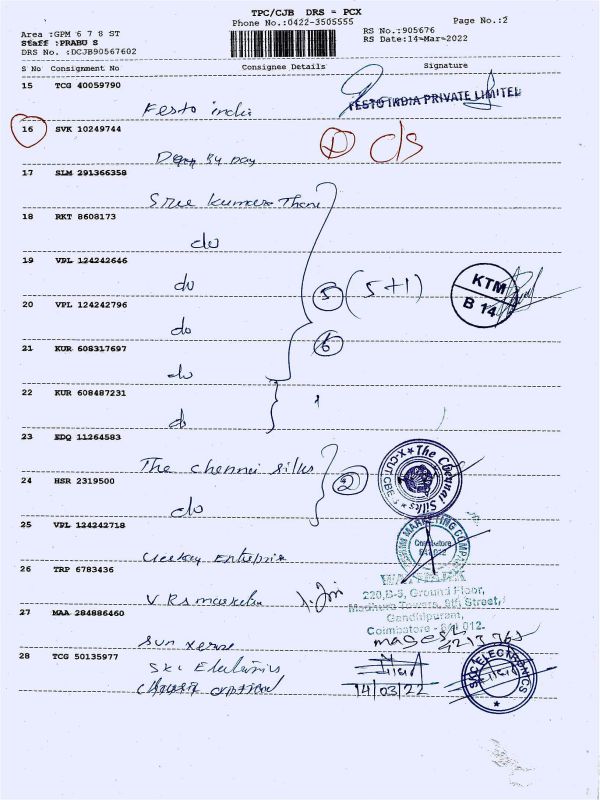 TPC/CJB DRS = PCX
Phone No.:0422-3505555
Page No.:2
Area :GPM 6 7 8 ST
Staff :PRABU S
DRS No. :DCJB90567602
RS No.:905676
RS Date:14-Mar-2022
S No Consignment No Consignee Details Signature
15 TCG 40059790
Festo india
FESTO INDIA PRIVATE LIMITED
16 SVK 10249744
ds
17 SLM 291366358
Sree kumara Thani
18 RKT 8608173
do
19 VPL 124242646
do
5 (5+1)
KTM
B 14
20 VPL 124242796
do
21 KUR 608317697
6
do
22 KUR 608487231
do
23 EDQ 11264583
The chennai silks
2
The Chennai Silks
24 HSR 2319500
do
25 VPL 124242718
MARKETING COMPANY
Coimbatore
641 012
26 TRP 6783436
220,B-5, Ground Floor,
Madhura Towers, 9th Street,
Gandhipuram,
Coimbatore - 641 012.
27 MAA 284886460
Sun xerox
28 TCG 50135977
SKC Eletronics
14/03/22
SKC ELECTRONICS